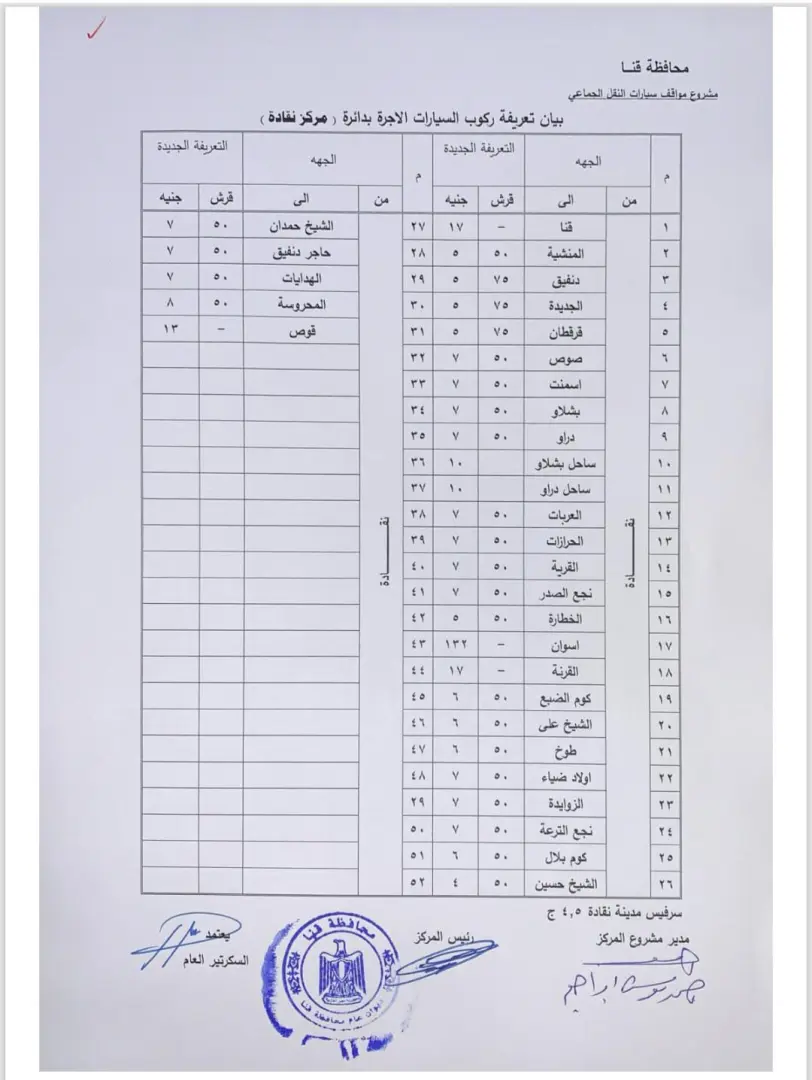 محافظة قنـا
مشروع مواقف سيارات النقل الجماعي
بيان تعريفة ركوب السيارات الاجرة بدائرة ( مركز نقادة )
م الجهه التعريفة الجديدة م الجهه التعريفة الجديدة
من الى قرش جنيه من الى قرش جنيه
١ قنا – ١٧ ٢٧ الشيخ حمدان ٥٠ ٧
٢ المنشية ٥٠ ٥ ٢٨ حاجر دنفيق ٥٠ ٧
٣ دنفيق ٧٥ ٥ ٢٩ الهدايات ٥٠ ٧
٤ الجديدة ٧٥ ٥ ٣٠ المحروسة ٥٠ ٨
٥ قرقطان ٧٥ ٥ ٣١ قوص – ١٣
٦ صوص ٥٠ ٧ ٣٢
٧ اسمنت ٥٠ ٧ ٣٣
٨ بشلاو ٥٠ ٧ ٣٤
٩ دراو ٥٠ ٧ ٣٥
١٠ ساحل بشلاو ١٠ ٣٦
١١ ساحل دراو ١٠ ٣٧
١٢ العربات ٥٠ ٧ ٣٨
نقـــادة نقـــادة
١٣ الحرازات ٥٠ ٧ ٣٩
١٤ القرية ٥٠ ٧ ٤٠
١٥ نجع الصدر ٥٠ ٧ ٤١
١٦ الخطارة ٥٠ ٥ ٤٢
١٧ اسوان – ١٣٢ ٤٣
١٨ القرنة – ١٧ ٤٤
١٩ كوم الضبع ٥٠ ٦ ٤٥
٢٠ الشيخ على ٥٠ ٦ ٤٦
٢١ طوخ ٥٠ ٦ ٤٧
٢٢ اولاد ضياء ٥٠ ٧ ٤٨
٢٣ الزوايدة ٥٠ ٧ ٢٩
٢٤ نجع الترعة ٥٠ ٧ ٥٠
٢٥ كوم بلال ٥٠ ٦ ٥١
٢٦ الشيخ حسين ٥٠ ٤ ٥٢
سرفيس مدينة نقادة ٤,٥ ج
مدير مشروع المركز رئيس المركز يعتمد
السكرتير العام
محافظة قنا
ديوان عام محافظة قنا